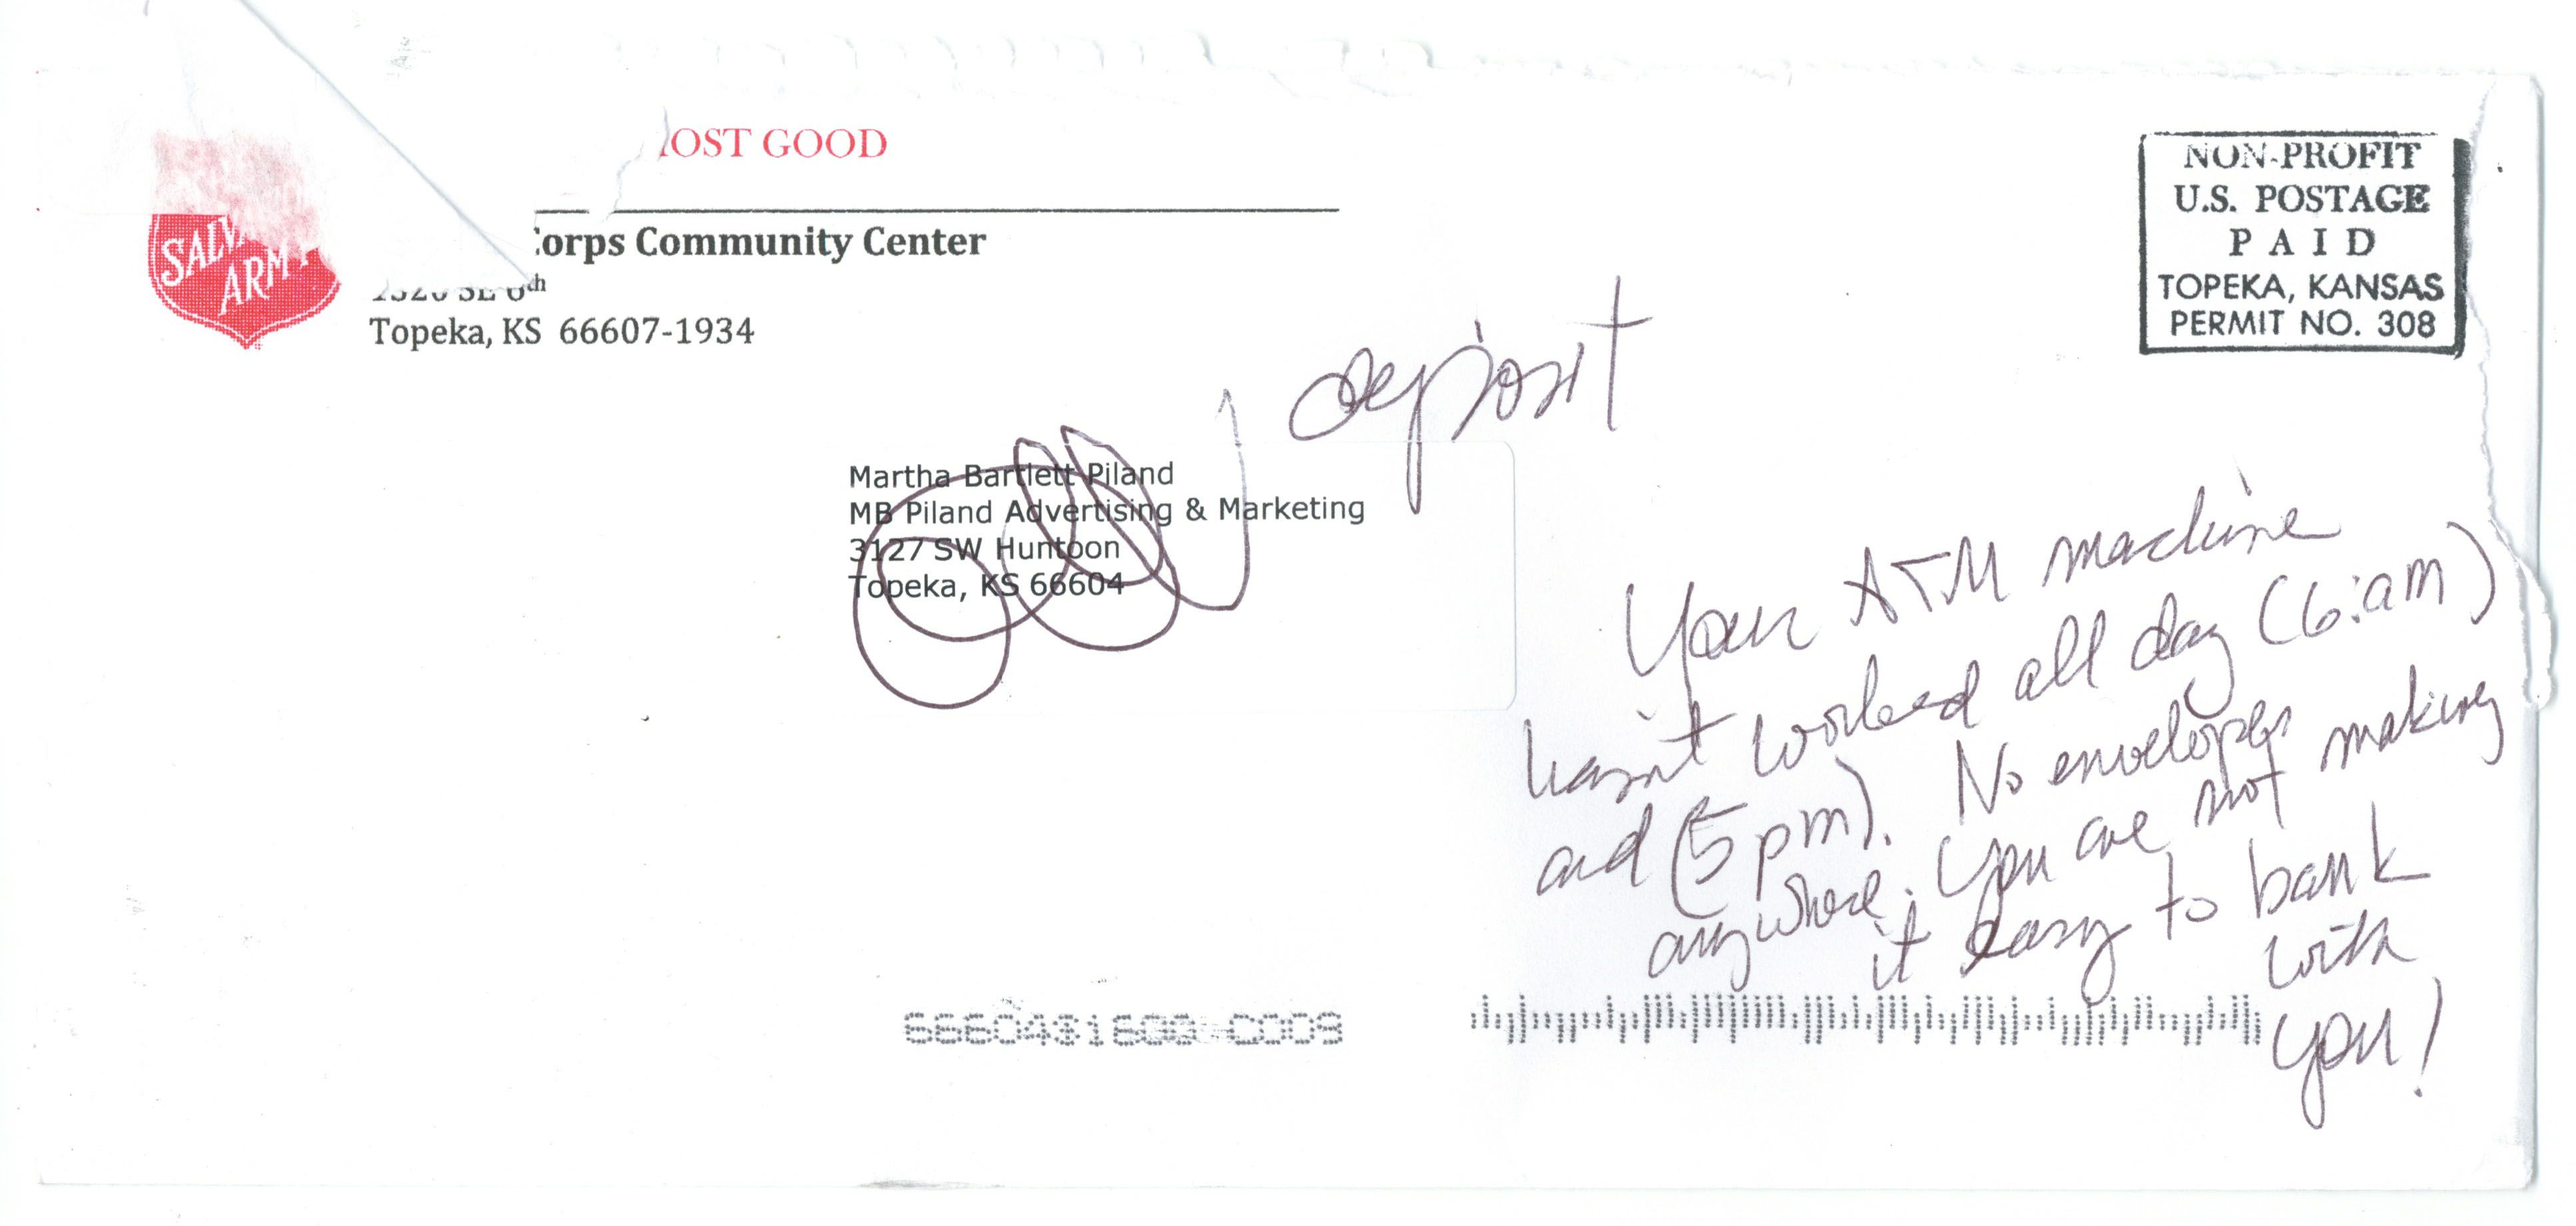 OST GOOD
SALV
ARMY
orps Community Center
1320 SE 6th
Topeka, KS 66607-1934
NON-PROFIT
U.S. POSTAGE
PAID
TOPEKA, KANSAS
PERMIT NO. 308
deposit
Martha Bartlett Piland
MB Piland Advertising & Marketing
3127 SW Huntoon
Topeka, KS 66604
Your ATM machine
hasn't worked all day (6:am)
and (5pm). No envelopes
anywhere. You are not making
it easy to bank
with
you!